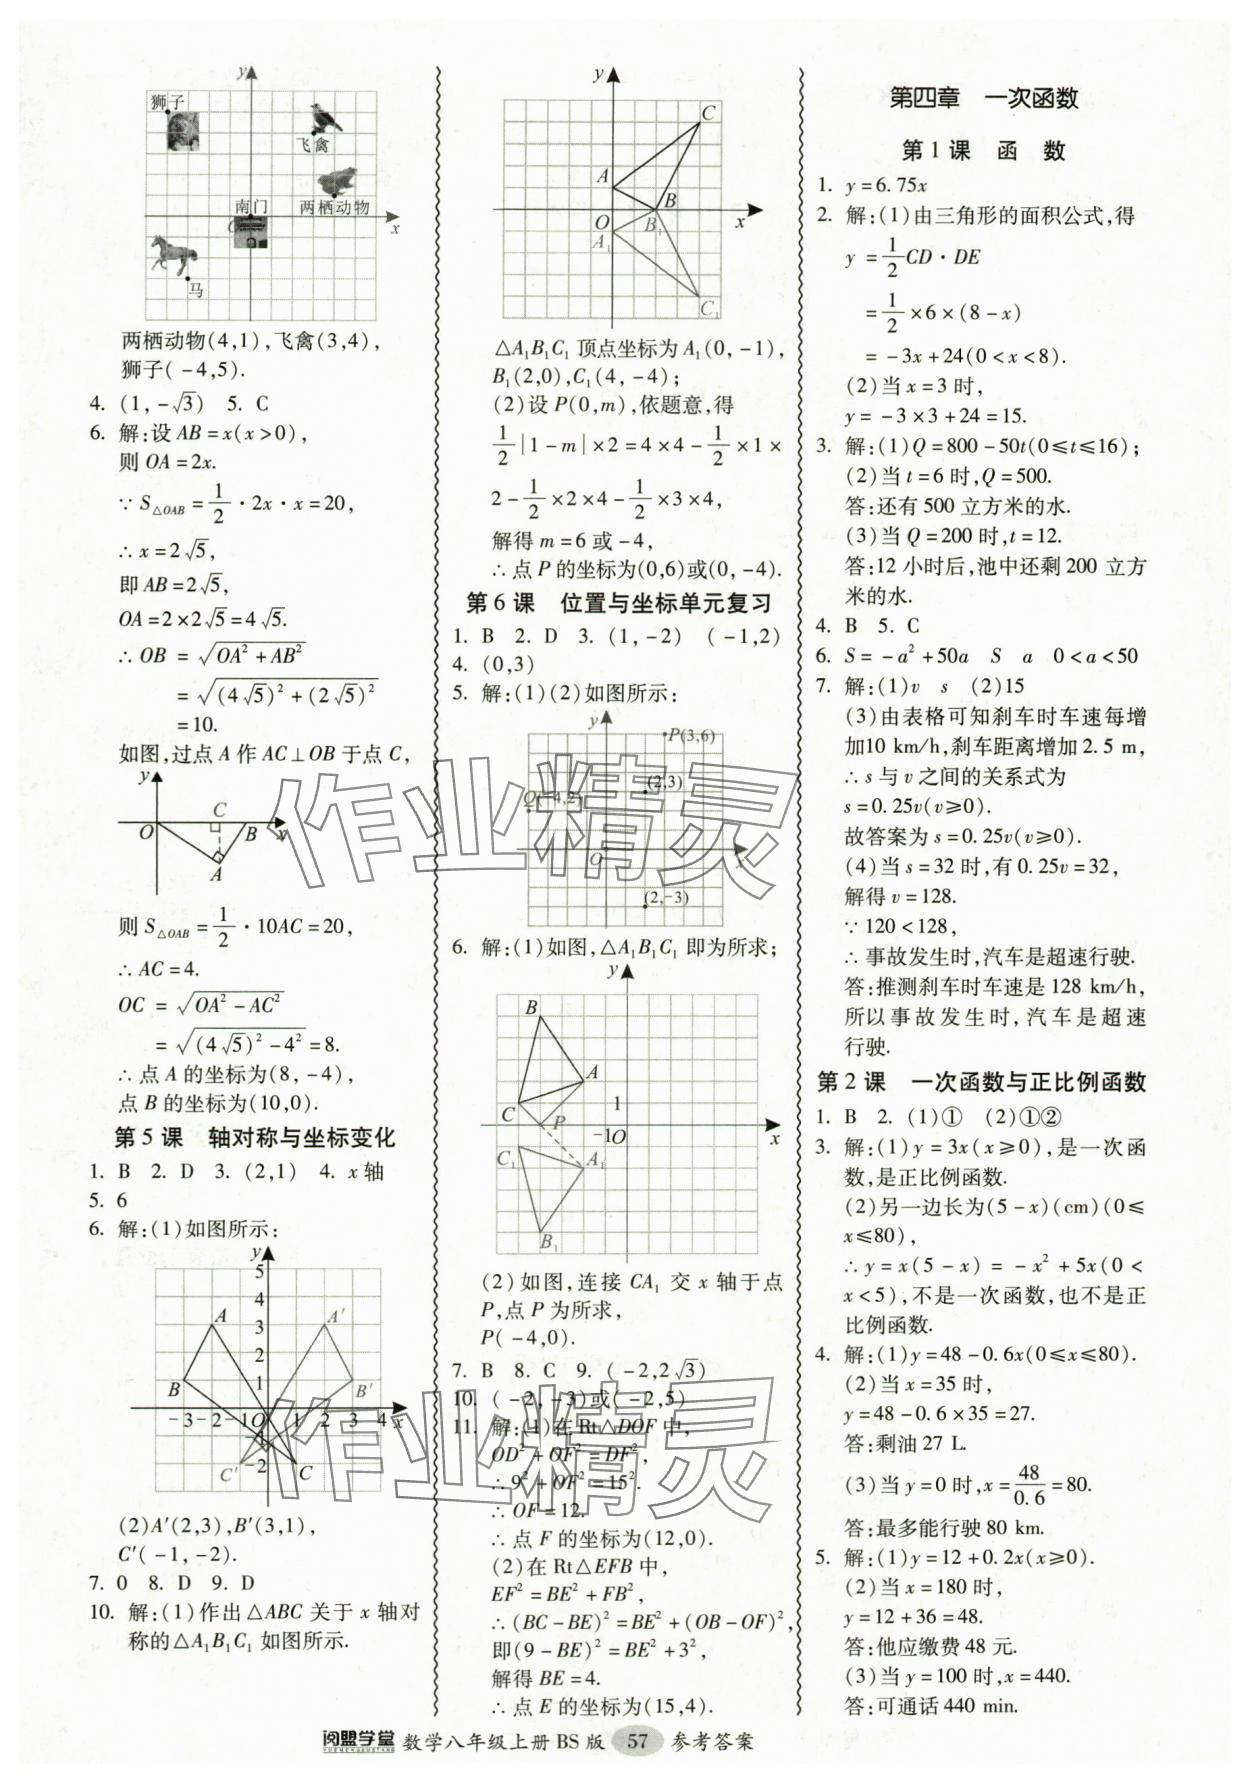 y
狮子
飞禽
南门
两栖动物
x
马
两栖动物(4,1),飞禽(3,4),
狮子(-4,5).
4. (1,-√3)  5. C
6. 解:设 AB=x(x>0),
则 OA=2x.
∵ S△OAB=1/2·2x·x=20,
∴ x=2√5,
即 AB=2√5,
OA=2×2√5=4√5.
∴ OB =√(OA²+AB²)
=√((4√5)²+(2√5)²)
=10.
如图,过点 A 作 AC⊥OB 于点 C,
y
C
O B x
A
则 S△OAB=1/2·10AC=20,
∴ AC=4.
OC =√(OA²-AC²)
=√((4√5)²-4²)=8.
∴ 点 A 的坐标为(8,-4),
点 B 的坐标为(10,0).
第 5 课 轴对称与坐标变化
1. B  2. D  3. (2,1)  4. x 轴
5. 6
6. 解:(1)如图所示:
y
5
4
A 3 A′
2
B 1 B′
-3 -2 -1 O 1 2 3 4 x
C′ -2 C
(2)A′(2,3),B′(3,1),
C′(-1,-2).
7. 0  8. D  9. D
10. 解:(1)作出△ABC 关于 x 轴对
称的△A₁B₁C₁ 如图所示.
y
C
A
B
O B₁ x
A₁
C₁
△A₁B₁C₁ 顶点坐标为 A₁(0,-1),
B₁(2,0),C₁(4,-4);
(2)设 P(0,m),依题意,得
1/2|1-m|×2=4×4-1/2×1×
2-1/2×2×4-1/2×3×4,
解得 m=6 或-4,
∴ 点 P 的坐标为(0,6)或(0,-4).
第 6 课 位置与坐标单元复习
1. B  2. D  3. (1,-2)  (-1,2)
4. (0,3)
5. 解:(1)(2)如图所示:
y
P(3,6)
(2,3)
Q(-4,2)
O x
(2,-3)
6. 解:(1)如图,△A₁B₁C₁ 即为所求;
y
B
A
C P 1
-1 O x
C₁ A₁
B₁
(2)如图,连接 CA₁ 交 x 轴于点
P,点 P 为所求,
P(-4,0).
7. B  8. C  9. (-2,2√3)
10. (-2,-3)或(-2,5)
11. 解:(1)在 Rt△DOF 中,
OD²+OF²=DF²,
∴ 9²+OF²=15².
∴ OF=12.
∴ 点 F 的坐标为(12,0).
(2)在 Rt△EFB 中,
EF²=BE²+FB²,
∴ (BC-BE)²=BE²+(OB-OF)²,
即(9-BE)²=BE²+3²,
解得 BE=4.
∴ 点 E 的坐标为(15,4).
第四章 一次函数
第 1 课 函 数
1. y=6.75x
2. 解:(1)由三角形的面积公式,得
y =1/2CD·DE
=1/2×6×(8-x)
=-3x+24(0<x<8).
(2)当 x=3 时,
y=-3×3+24=15.
3. 解:(1)Q=800-50t(0≤t≤16);
(2)当 t=6 时,Q=500.
答:还有 500 立方米的水.
(3)当 Q=200 时,t=12.
答:12 小时后,池中还剩 200 立方
米的水.
4. B  5. C
6. S=-a²+50a  S  a  0<a<50
7. 解:(1)v  s  (2)15
(3)由表格可知刹车时车速每增
加10 km/h,刹车距离增加 2.5 m,
∴ s 与 v 之间的关系式为
s=0.25v(v≥0).
故答案为 s=0.25v(v≥0).
(4)当 s=32 时,有 0.25v=32,
解得 v=128.
∵ 120<128,
∴ 事故发生时,汽车是超速行驶.
答:推测刹车时车速是 128 km/h,
所以事故发生时,汽车是超速
行驶.
第 2 课 一次函数与正比例函数
1. B  2. (1)①  (2)①②
3. 解:(1)y=3x(x≥0),是一次函
数,是正比例函数.
(2)另一边长为(5-x)(cm)(0≤
x≤80),
∴ y=x(5-x)=-x²+5x(0<
x<5),不是一次函数,也不是正
比例函数.
4. 解:(1)y=48-0.6x(0≤x≤80).
(2)当 x=35 时,
y=48-0.6×35=27.
答:剩油 27 L.
(3)当 y=0 时,x=48/0.6=80.
答:最多能行驶 80 km.
5. 解:(1)y=12+0.2x(x≥0).
(2)当 x=180 时,
y=12+36=48.
答:他应缴费 48 元.
(3)当 y=100 时,x=440.
答:可通话 440 min.
作业精灵
作业精灵
阅盟学堂 数学八年级上册 BS 版 57 参考答案